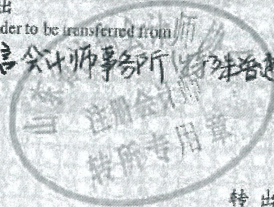 出
der to be transferred from
会计师事务所（特殊普
注册会计师
转所专用章
转出